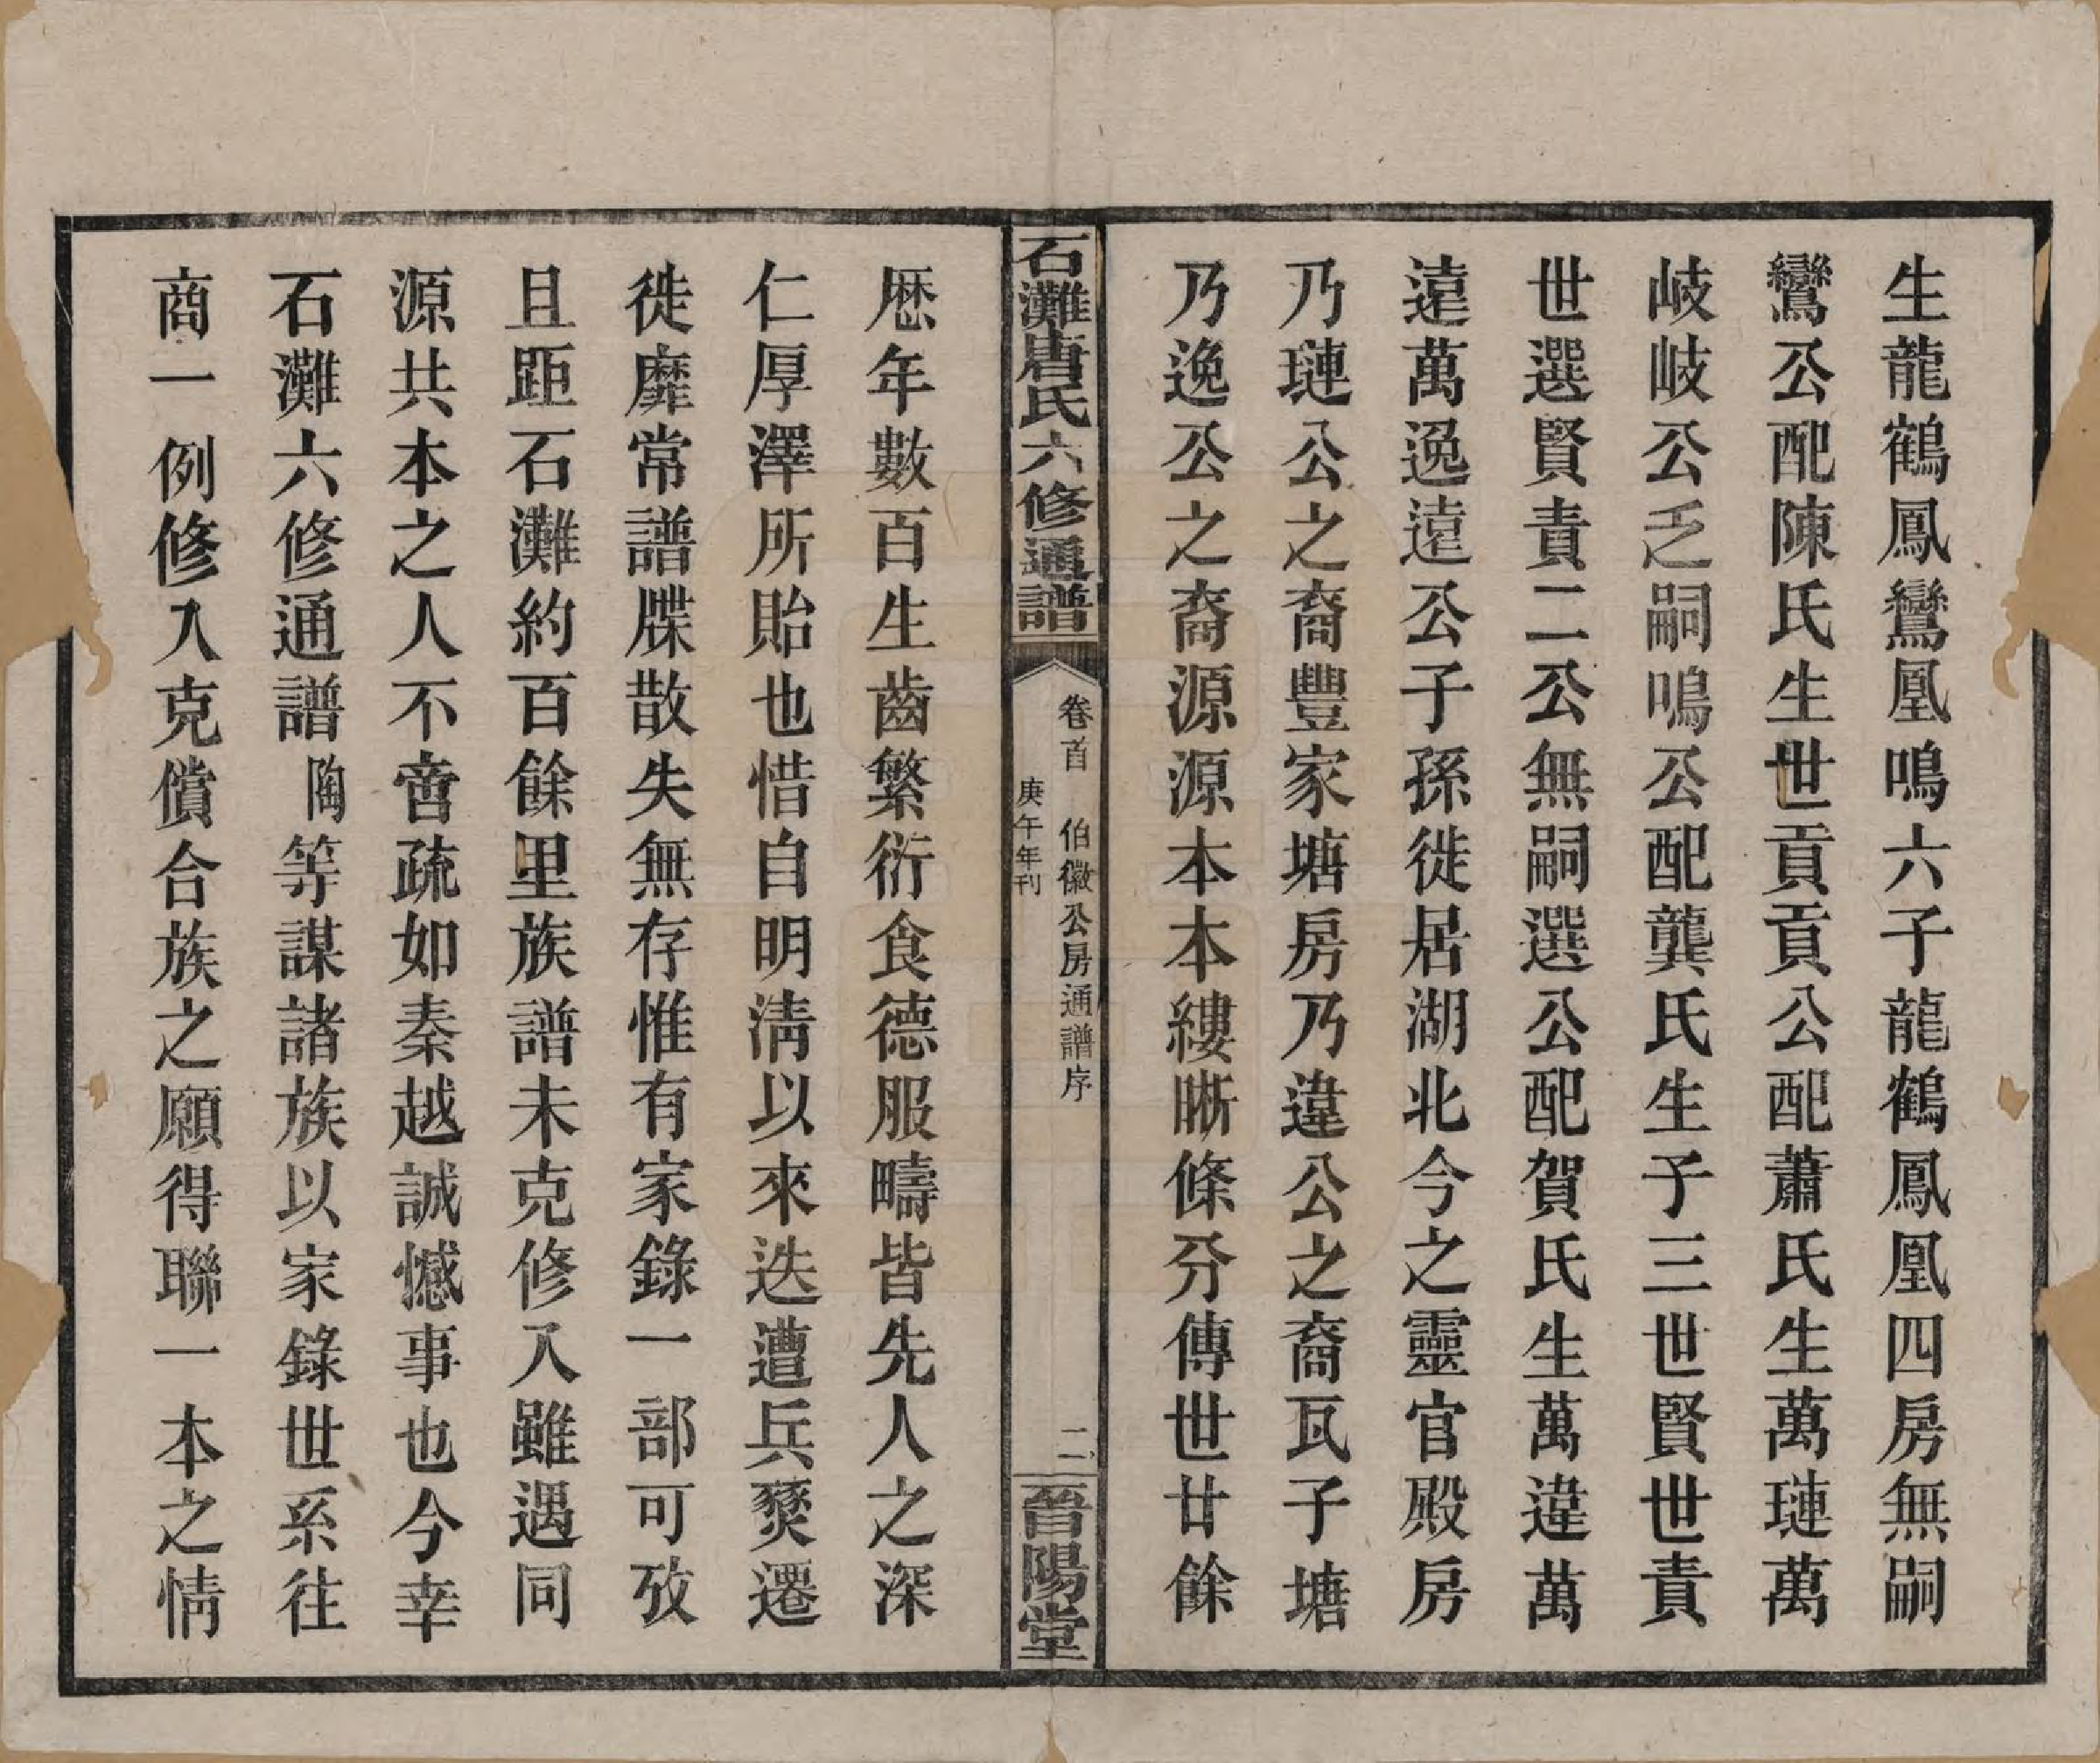 生龍鶴鳳鸞凰鳴六子龍鶴鳳凰四房無嗣
鸞公配陳氏生世貢貢公配蕭氏生萬璉萬
岐岐公乏嗣鳴公配龔氏生子三世賢世責
世選賢責二公無嗣選公配賀氏生萬違萬
遠萬逸遠公子孫徙居湖北今之靈官殿房
乃璉公之裔豐家塘房乃違公之裔瓦子塘
乃逸公之裔源源本本縷晰條分傳世廿餘
石灘唐氏六修通譜
卷首 伯徽公房通譜序
庚午年刊
二
晉陽堂
歷年數百生齒繁衍食德服疇皆先人之深
仁厚澤所貽也惜自明淸以來迭遭兵燹遷
徙靡常譜牒散失無存惟有家錄一部可攷
且距石灘約百餘里族譜未克修入雖遇同
源共本之人不啻疏如秦越誠憾事也今幸
石灘六修通譜陶等謀諸族以家錄世系往
商一例修入克償合族之願得聯一本之情